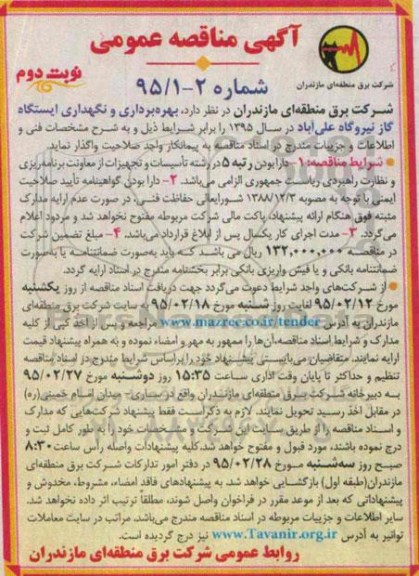 آگهی مناقصه عمومی
نوبت دوم
شرکت برق منطقه‌ای مازندران
شماره ۲-۹۵/۱
شرکت برق منطقه‌ای مازندران در نظر دارد، بهره‌برداری و نگهداری ایستگاه
گاز نیروگاه علی‌آباد در سال ۱۳۹۵ را برابر شرایط ذیل و به شرح مشخصات فنی و
اطلاعات و جزییات مندرج در اسناد مناقصه به پیمانکار واجد صلاحیت واگذار نماید.
شرایط مناقصه: ۱- دارا بودن رتبه ۵ در رشته تأسیسات و تجهیزات از معاونت برنامه‌ریزی
و نظارت راهبردی ریاست جمهوری الزامی می‌باشد. ۲- دارا بودن گواهینامه تأیید صلاحیت
ایمنی با توجه به مصوبه ۱۳۸۸/۱۲/۳ شورایعالی حفاظت فنی، در صورت عدم ارایه مدارک
مثبته فوق هنگام ارائه پیشنهاد، پاکت مالی شرکت مربوطه مفتوح نخواهد شد و مردود اعلام
می‌گردد. ۳- مدت اجرای کار یکسال پس از ابلاغ قرارداد می‌باشد. ۴- مبلغ تضمین شرکت
در مناقصه ۱۳۲,۰۰۰,۰۰۰ ریال می باشد که باید به‌صورت ضمانتنامه یا به‌صورت
ضمانتنامه بانکی و یا فیش واریزی بانکی برابر بخشنامه مندرج در اسناد ارایه گردد.
از شرکت‌های واجد شرایط دعوت می‌گردد جهت دریافت اسناد مناقصه از روز یکشنبه
مورخ ۹۵/۰۲/۱۲ لغایت روز شنبه مورخ ۹۵/۰۲/۱۸ به سایت شرکت برق منطقه‌ای
مازندران به آدرس www.mazrec.co.ir/tender مراجعه و پس از اخذ کپی از کلیه
مدارک و شرایط اسناد مناقصه، آن‌ها را ممهور به مهر و امضاء نموده و به همراه پیشنهاد قیمت
ارایه نمایند. متقاضیان می‌بایستی پیشنهاد خود را براساس شرایط مندرج در اسناد مناقصه
تنظیم و حداکثر تا پایان وقت اداری ساعت ۱۵:۳۵ روز دوشنبه مورخ ۹۵/۰۲/۲۷
به دبیرخانه شرکت برق منطقه‌ای مازندران واقع در ساری- میدان امام خمینی(ره)
در مقابل اخذ رسید تحویل نمایند. لازم به ذکر است فقط پیشنهاد شرکت‌هایی که مدارک
و اسناد مناقصه را از طریق سایت این شرکت و مشخصات خود را به طور کامل ثبت و
درج نموده باشند، مورد قبول و مفتوح خواهد شد. کلیه پیشنهادات واصله رأس ساعت ۸:۳۰
صبح روز سه‌شنبه مورخ ۹۵/۰۲/۲۸ در دفتر امور تدارکات شرکت برق منطقه‌ای
مازندران(طبقه اول) بازگشایی خواهد شد. به پیشنهادهای فاقد امضاء، مشروط، مخدوش و
پیشنهاداتی که بعد از موعد مقرر در فراخوان واصل شوند، مطلقاً ترتیب اثر داده نخواهد شد.
سایر اطلاعات و جزییات مربوطه در اسناد مناقصه مندرج می‌باشد. مراتب در سایت معاملات
توانیر به آدرس www.Tavanir.org.ir نیز درج گردیده است.
روابط عمومی شرکت برق منطقه‌ای مازندران